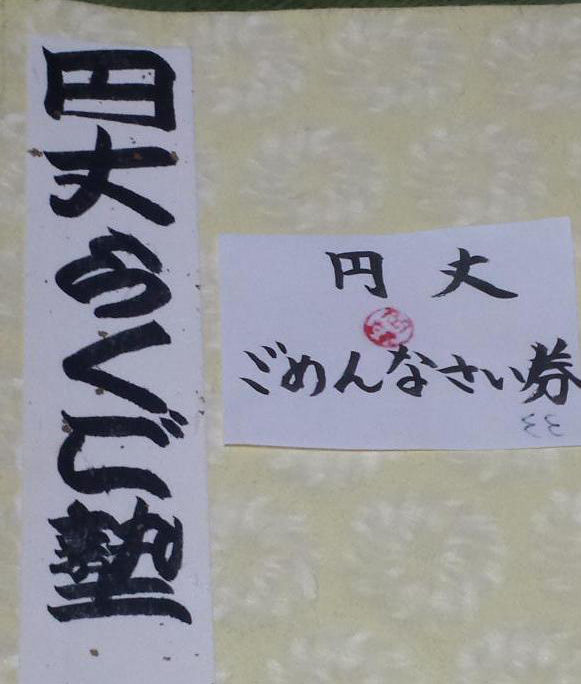 円丈らくご塾
円丈
ごめんなさい券
33